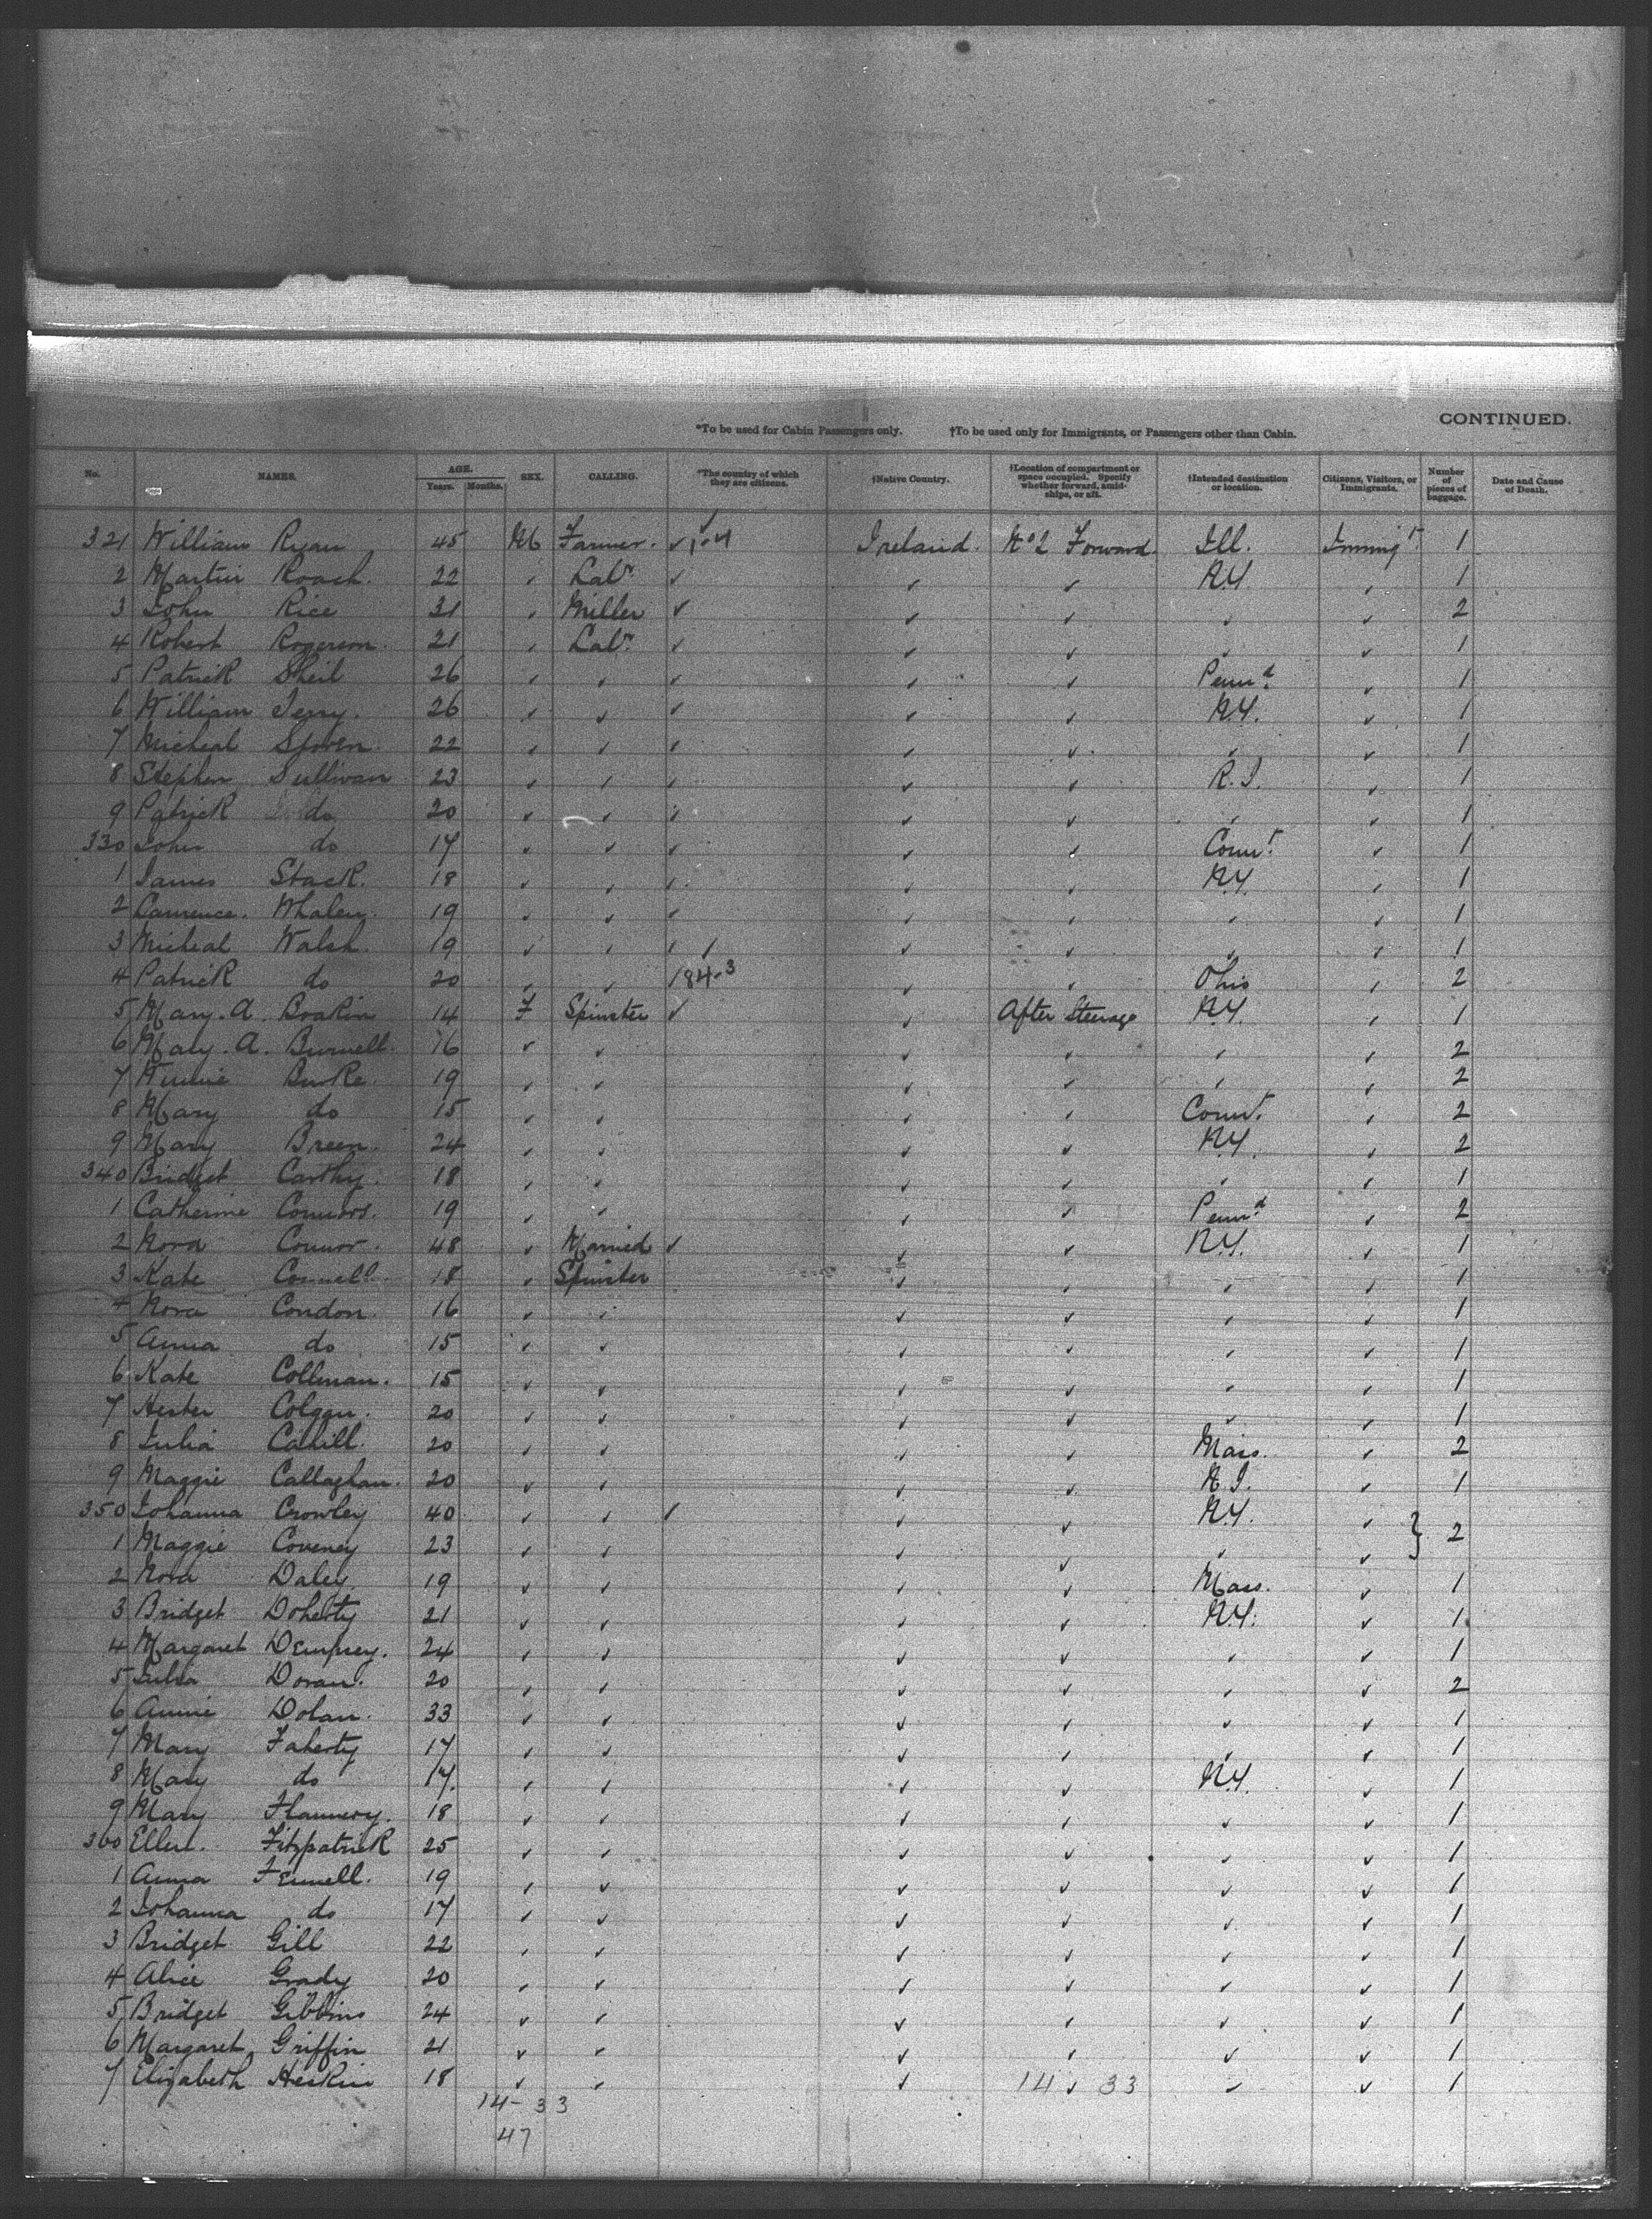 CONTINUED.
*To be used for Cabin Passengers only. †To be used only for Immigrants, or Passengers other than Cabin.
No. NAMES. AGE. Years. Months. SEX. CALLING. *The country of which they are citizens. †Native Country. †Location of compartment or space occupied. Specify whether forward, amidships, or aft. †Intended destination or location. Citizens, Visitors, or Immigrants. Number of pieces of baggage. Date and Cause of Death.
321 William Ryan 45 M Farmer. ✓ Ireland. No 2 Forward. Ill. Immigt. 1
2 Martin Roach. 22 ✓ Labr ✓ ✓ ✓ N.Y. ✓ 1
3 John Rice 31 ✓ Miller ✓ ✓ ✓ ✓ ✓ 2
4 Robert Rogerson. 21 ✓ Labr. ✓ ✓ ✓ ✓ ✓ 1
5 Patrick Sheil 26 ✓ ✓ ✓ ✓ ✓ Penna. ✓ 1
6 William Terry. 26 ✓ ✓ ✓ ✓ ✓ N.Y. ✓ 1
7 Micheal 22 ✓ ✓ ✓ ✓ ✓ ✓ ✓ 1
8 Stephen Sullivan 23 ✓ ✓ ✓ ✓ ✓ R.I. ✓ 1
9 Patrick do 20 ✓ ✓ ✓ ✓ ✓ ✓ ✓ 1
330 John do 17 ✓ ✓ ✓ ✓ ✓ Connt. ✓ 1
1 James Stack. 18 ✓ ✓ ✓ ✓ ✓ N.Y. ✓ 1
2 Laurence. Whalen. 19 ✓ ✓ ✓ ✓ ✓ ✓ ✓ 1
3 Micheal Walsh. 19 ✓ ✓ ✓ ✓ ✓ ✓ ✓ 1
4 Patrick do 20 ✓ ✓ 184-3 ✓ ✓ Ohio ✓ 2
5 Mary. A. 14 F Spinster ✓ ✓ After Steerage N.Y. ✓ 1
6 Mary. A. Burnell. 16 ✓ ✓ ✓ ✓ ✓ ✓ 2
7 Burke. 19 ✓ ✓ ✓ ✓ ✓ ✓ 2
8 Mary do 15 ✓ ✓ ✓ ✓ Connt. ✓ 2
9 Mary Breen. 24 ✓ ✓ ✓ ✓ N.Y. ✓ 2
340 Bridget Carthy. 18 ✓ ✓ ✓ ✓ ✓ ✓ 1
1 Catherine Connors. 19 ✓ ✓ ✓ ✓ Penna ✓ 2
2 Nora Connor. 48 ✓ Married ✓ ✓ ✓ N.Y. ✓ 1
3 Kate Connell. 18 ✓ Spinster ✓ ✓ ✓ ✓ 1
4 Nora Condon. 16 ✓ ✓ ✓ ✓ ✓ ✓ 1
5 Anna do 15 ✓ ✓ ✓ ✓ ✓ ✓ 1
6 Kate Collman. 15 ✓ ✓ ✓ ✓ ✓ ✓ 1
7 Hester Colgan. 20 ✓ ✓ ✓ ✓ ✓ ✓ 1
8 Julia Cahill. 20 ✓ ✓ ✓ ✓ Mass. ✓ 2
9 Maggie Callaghan. 20 ✓ ✓ ✓ ✓ ✓ 1
350 Johanna Crowley 40 ✓ ✓ ✓ ✓ ✓ N.Y. ✓ } 2
1 Maggie Coveney 23 ✓ ✓ ✓ ✓ ✓ ✓
2 Nora Daley. 19 ✓ ✓ ✓ ✓ Mass. ✓ 1
3 Bridget Doherty 21 ✓ ✓ ✓ ✓ N.Y. ✓ 1
4 Margaret Dempsey. 24 ✓ ✓ ✓ ✓ ✓ ✓ 1
5 Julia Doran. 20 ✓ ✓ ✓ ✓ ✓ ✓ 2
6 Annie Dolan. 33 ✓ ✓ ✓ ✓ ✓ ✓ 1
7 Mary Faherty 17 ✓ ✓ ✓ ✓ ✓ ✓ 1
8 Mary do 17. ✓ ✓ ✓ ✓ N.Y. ✓ 1
9 Mary Flannery. 18 ✓ ✓ ✓ ✓ ✓ ✓ 1
360 Ellen. Fitzpatrick 25 ✓ ✓ ✓ ✓ ✓ ✓ 1
1 Anna Fennell. 19 ✓ ✓ ✓ ✓ ✓ ✓ 1
2 Johanna do 17 ✓ ✓ ✓ ✓ ✓ ✓ 1
3 Bridget Gill 22 ✓ ✓ ✓ ✓ ✓ ✓ 1
4 Alice Grady 20 ✓ ✓ ✓ ✓ ✓ ✓ 1
5 Bridget Gibbins 24 ✓ ✓ ✓ ✓ ✓ ✓ 1
6 Margaret Griffin 21 ✓ ✓ ✓ ✓ ✓ ✓ 1
7 Elizabeth Heskin 18 ✓ ✓ ✓ 14 ✓ 33 ✓ ✓ 1
14-33
47